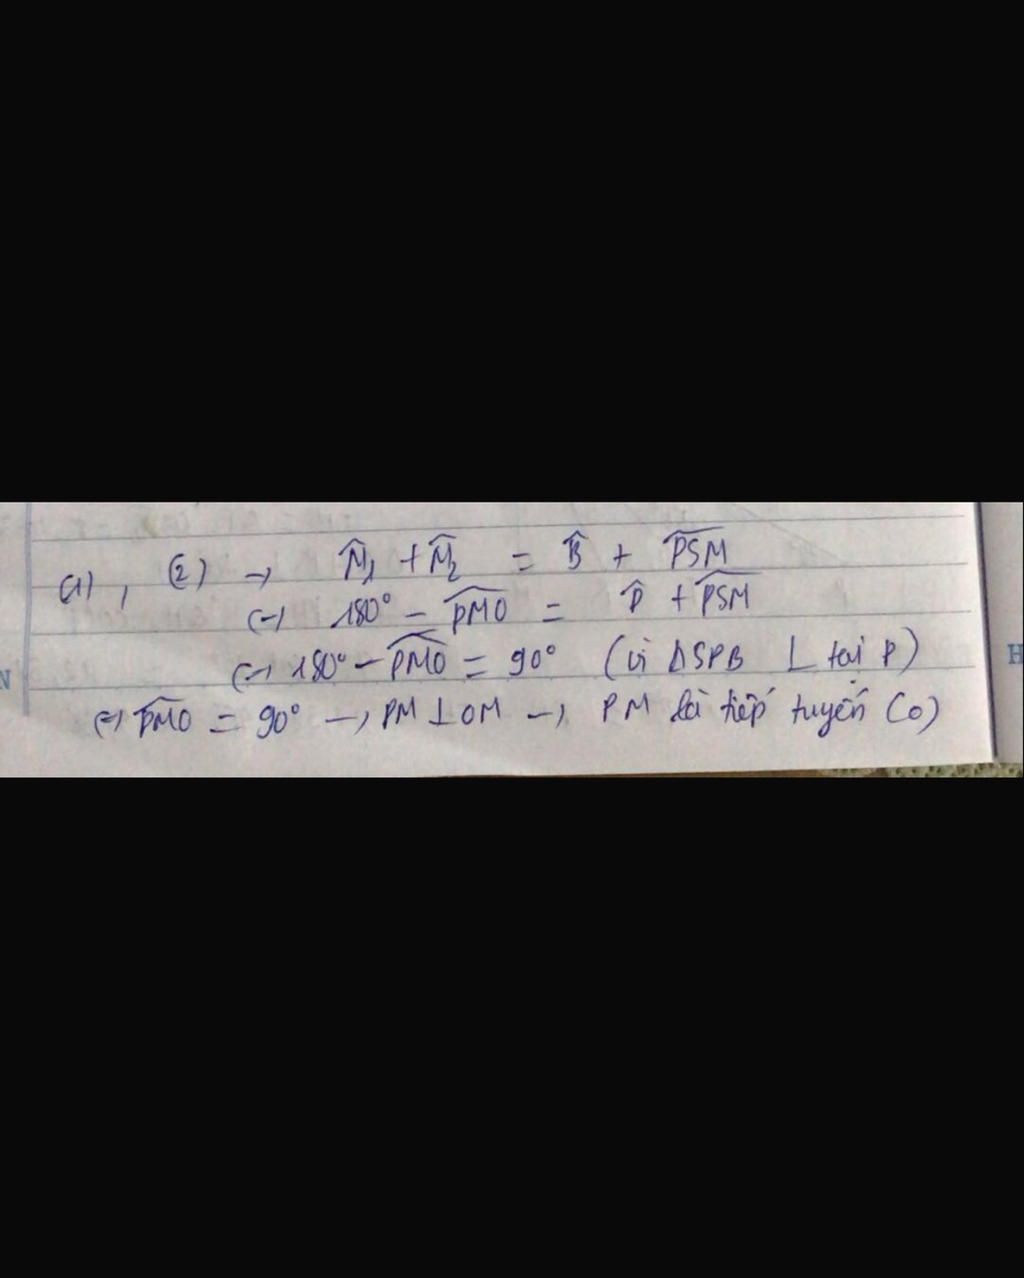 (1), (2) → M̂₁ + M̂₂ = B̂ + \widehat{PSM}
(=) 180° - \widehat{PMO} = B̂ + \widehat{PSM}
(=) 180° - \widehat{PMO} = 90° (vì ΔSPB ⊥ tại P)
(=) \widehat{PMO} = 90° → PM ⊥ OM → PM là tiếp tuyến (O)
N
H